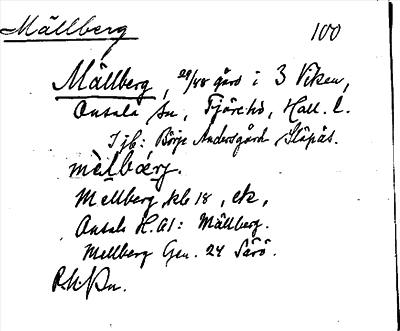 Mällberg 100
Mällberg, 29/48 gård i 3 Viken,
Onsala sn, Fjäre hd, Hall. l.
I jb: Börje Andersgård Släpås.
mèlbærj.
Mellberg kb 18, ek,
Onsala H.A1: Mällberg.
Mellberg Gen. 24 Särö.